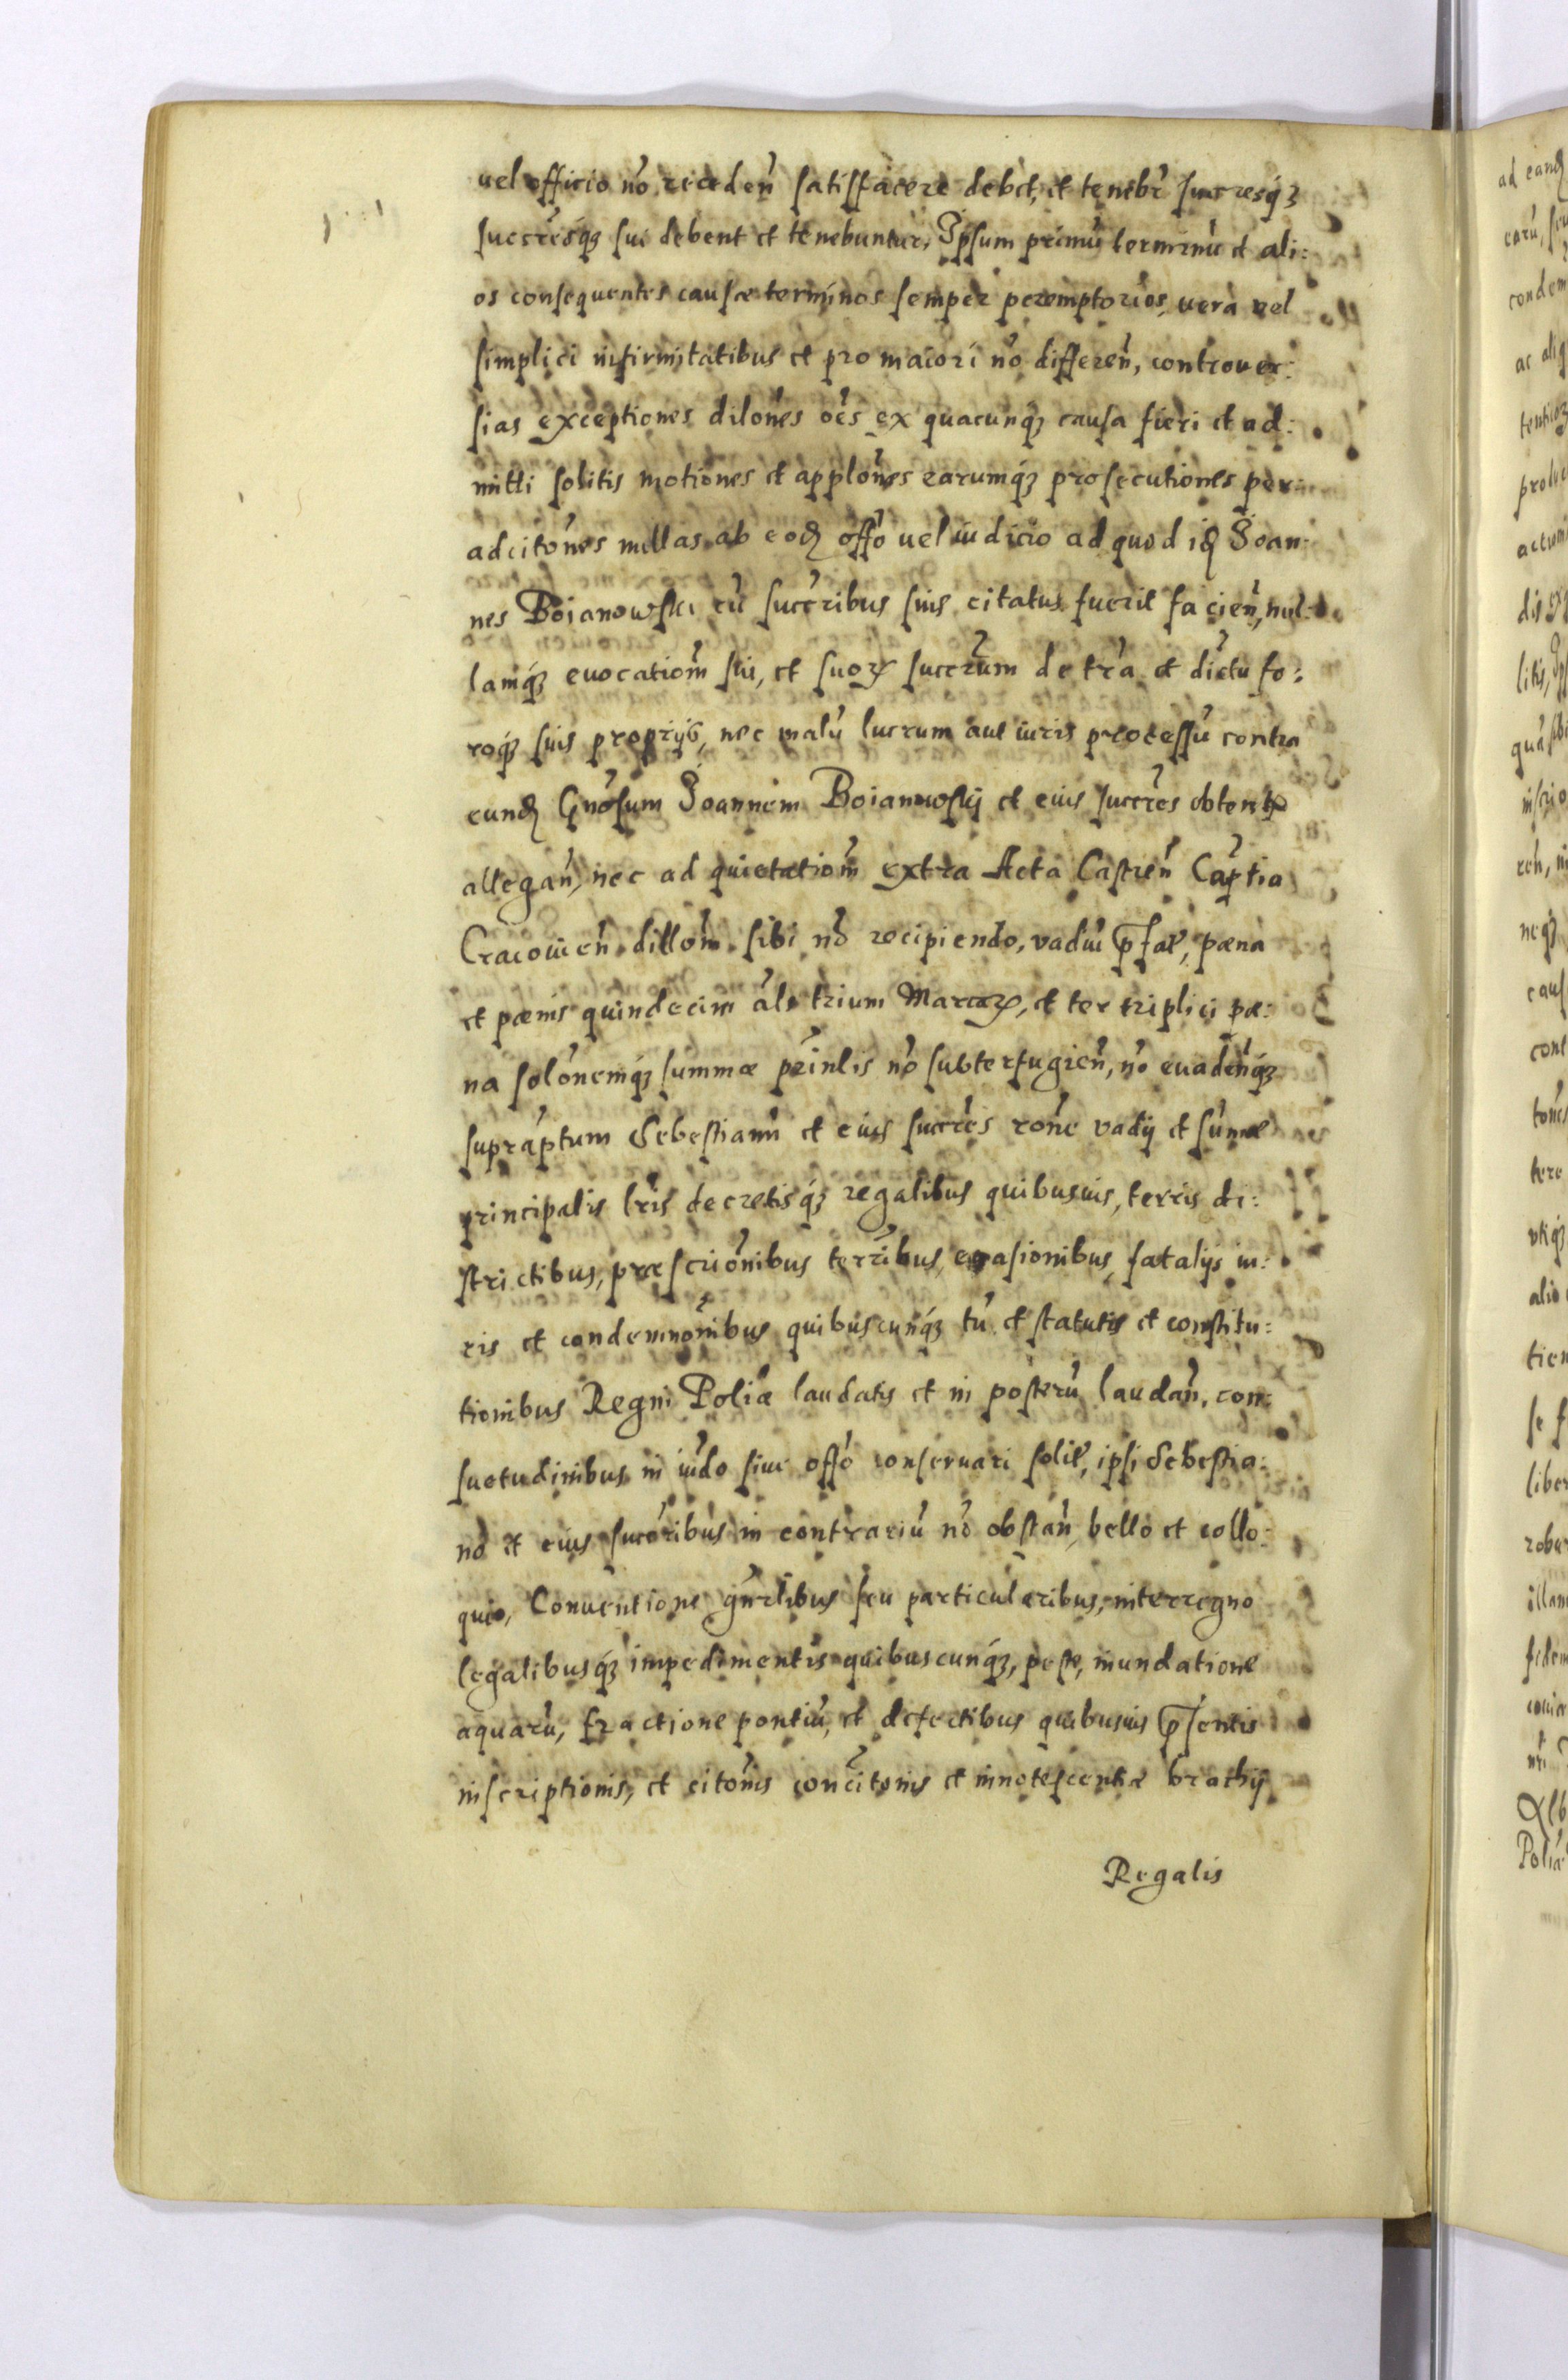 vel officio nõ recedeñ satisfacere debet, et tenebr̃ succresq́ꝫ
succr̃esq́ꝫ sui debent et tenebuntur, Ipsum primũ terminũ et ali:
os consequentes causæ terminos semper peremptorios, vera vel
simplici infirmitatibus et pro maiori nõ differeñ, controver:
sias exceptiones dilõnes oẽs ex quacunq́ꝫ causa fieri et ad:
mitti solitis motiones et applõnes earumq́ꝫ prosecutiones per
adcitõnes nullas ab eod̃ offõ vel iudicio ad quod id̃ Joan:
nes Boianowski cũ succr̃ibus suis citatus fuerit facieñ, nul:
lamq́ꝫ evocatiom̃ sui, et suoꝝ succr̃um de tr̃a et dictu fo:
roq́ꝫ suis proprijs, nec malũ lucrum aut iuris processũ contra
eund̃ Gnõsum Joannem Boianowskij et eius succr̃es obtent
allegañ, nec ad quietatiom̃ extra Acta Castreñ Cap̃tia
Cracovieñ dillom̃ sibi nõ recipiendo, vadiũ p̃fat̃, pæna
et pænis quindecim al̃s trium Marcaꝝ, et ter triplici pæ:
na solõnemq́ꝫ summæ prĩnlis nõ subterfugieñ, nõ evadeñq́ꝫ
suprap̃tum Sebestianũ et eius succr̃es rõne vadij et sum̃æ
principalis lr̃is decretisq́ꝫ regalibus quibusvis, terris di:
strictibus, præscriõnibus terrĩbus, evasionibus, fatalijs iu:
ris et condemnõnibus quibuscunq́ꝫ tũ et statutis et constitu:
tionibus Regni Poliæ laudatis et in posterũ laudañ, con:
suetudinibus in iudõ sive offõ conservari solit̃, ipsi Sebestia:
no et eius succr̃ibus in contrariũ nõ obstañ, bello et collo:
quio, Conventione gñrlibus seu particularibus, interregno
legalibusq́ꝫ impedimentis quibuscunq́ꝫ, peste, inundatione
aquarũ, fractione pontiũ, et defectibus quibusvis p̃sentis
inscriptionis, et citõnis concitõnis et innotescentiæ brachij
Regalis